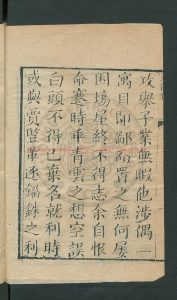 攻舉子業無暇他涉偶一
寓目即鄙而置之無何屢
困場屋終不得志余自恨
命蹇時乖青雲之想空誤
白頭不得已棄名就利時
或與賈豎輩逐錙銖之利